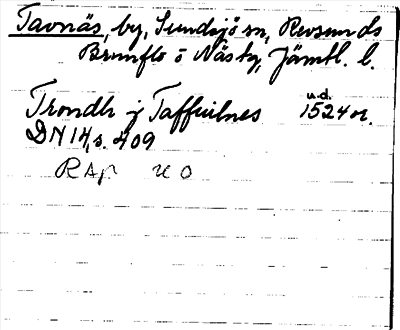 Tavnäs, by, Sundsjö sn, Revsunds
Brunflo o Näs tg, Jämtl. l.
u.d.
Trondh j Taffuilnes 1524 or.
DN 14, s. 409
RAp. NO